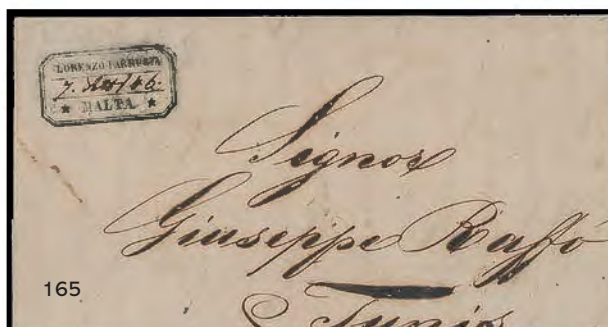 LORENZO FARRUGIA
★ MALTA ★
Signor
Giuseppe Raffo
Tunis
165